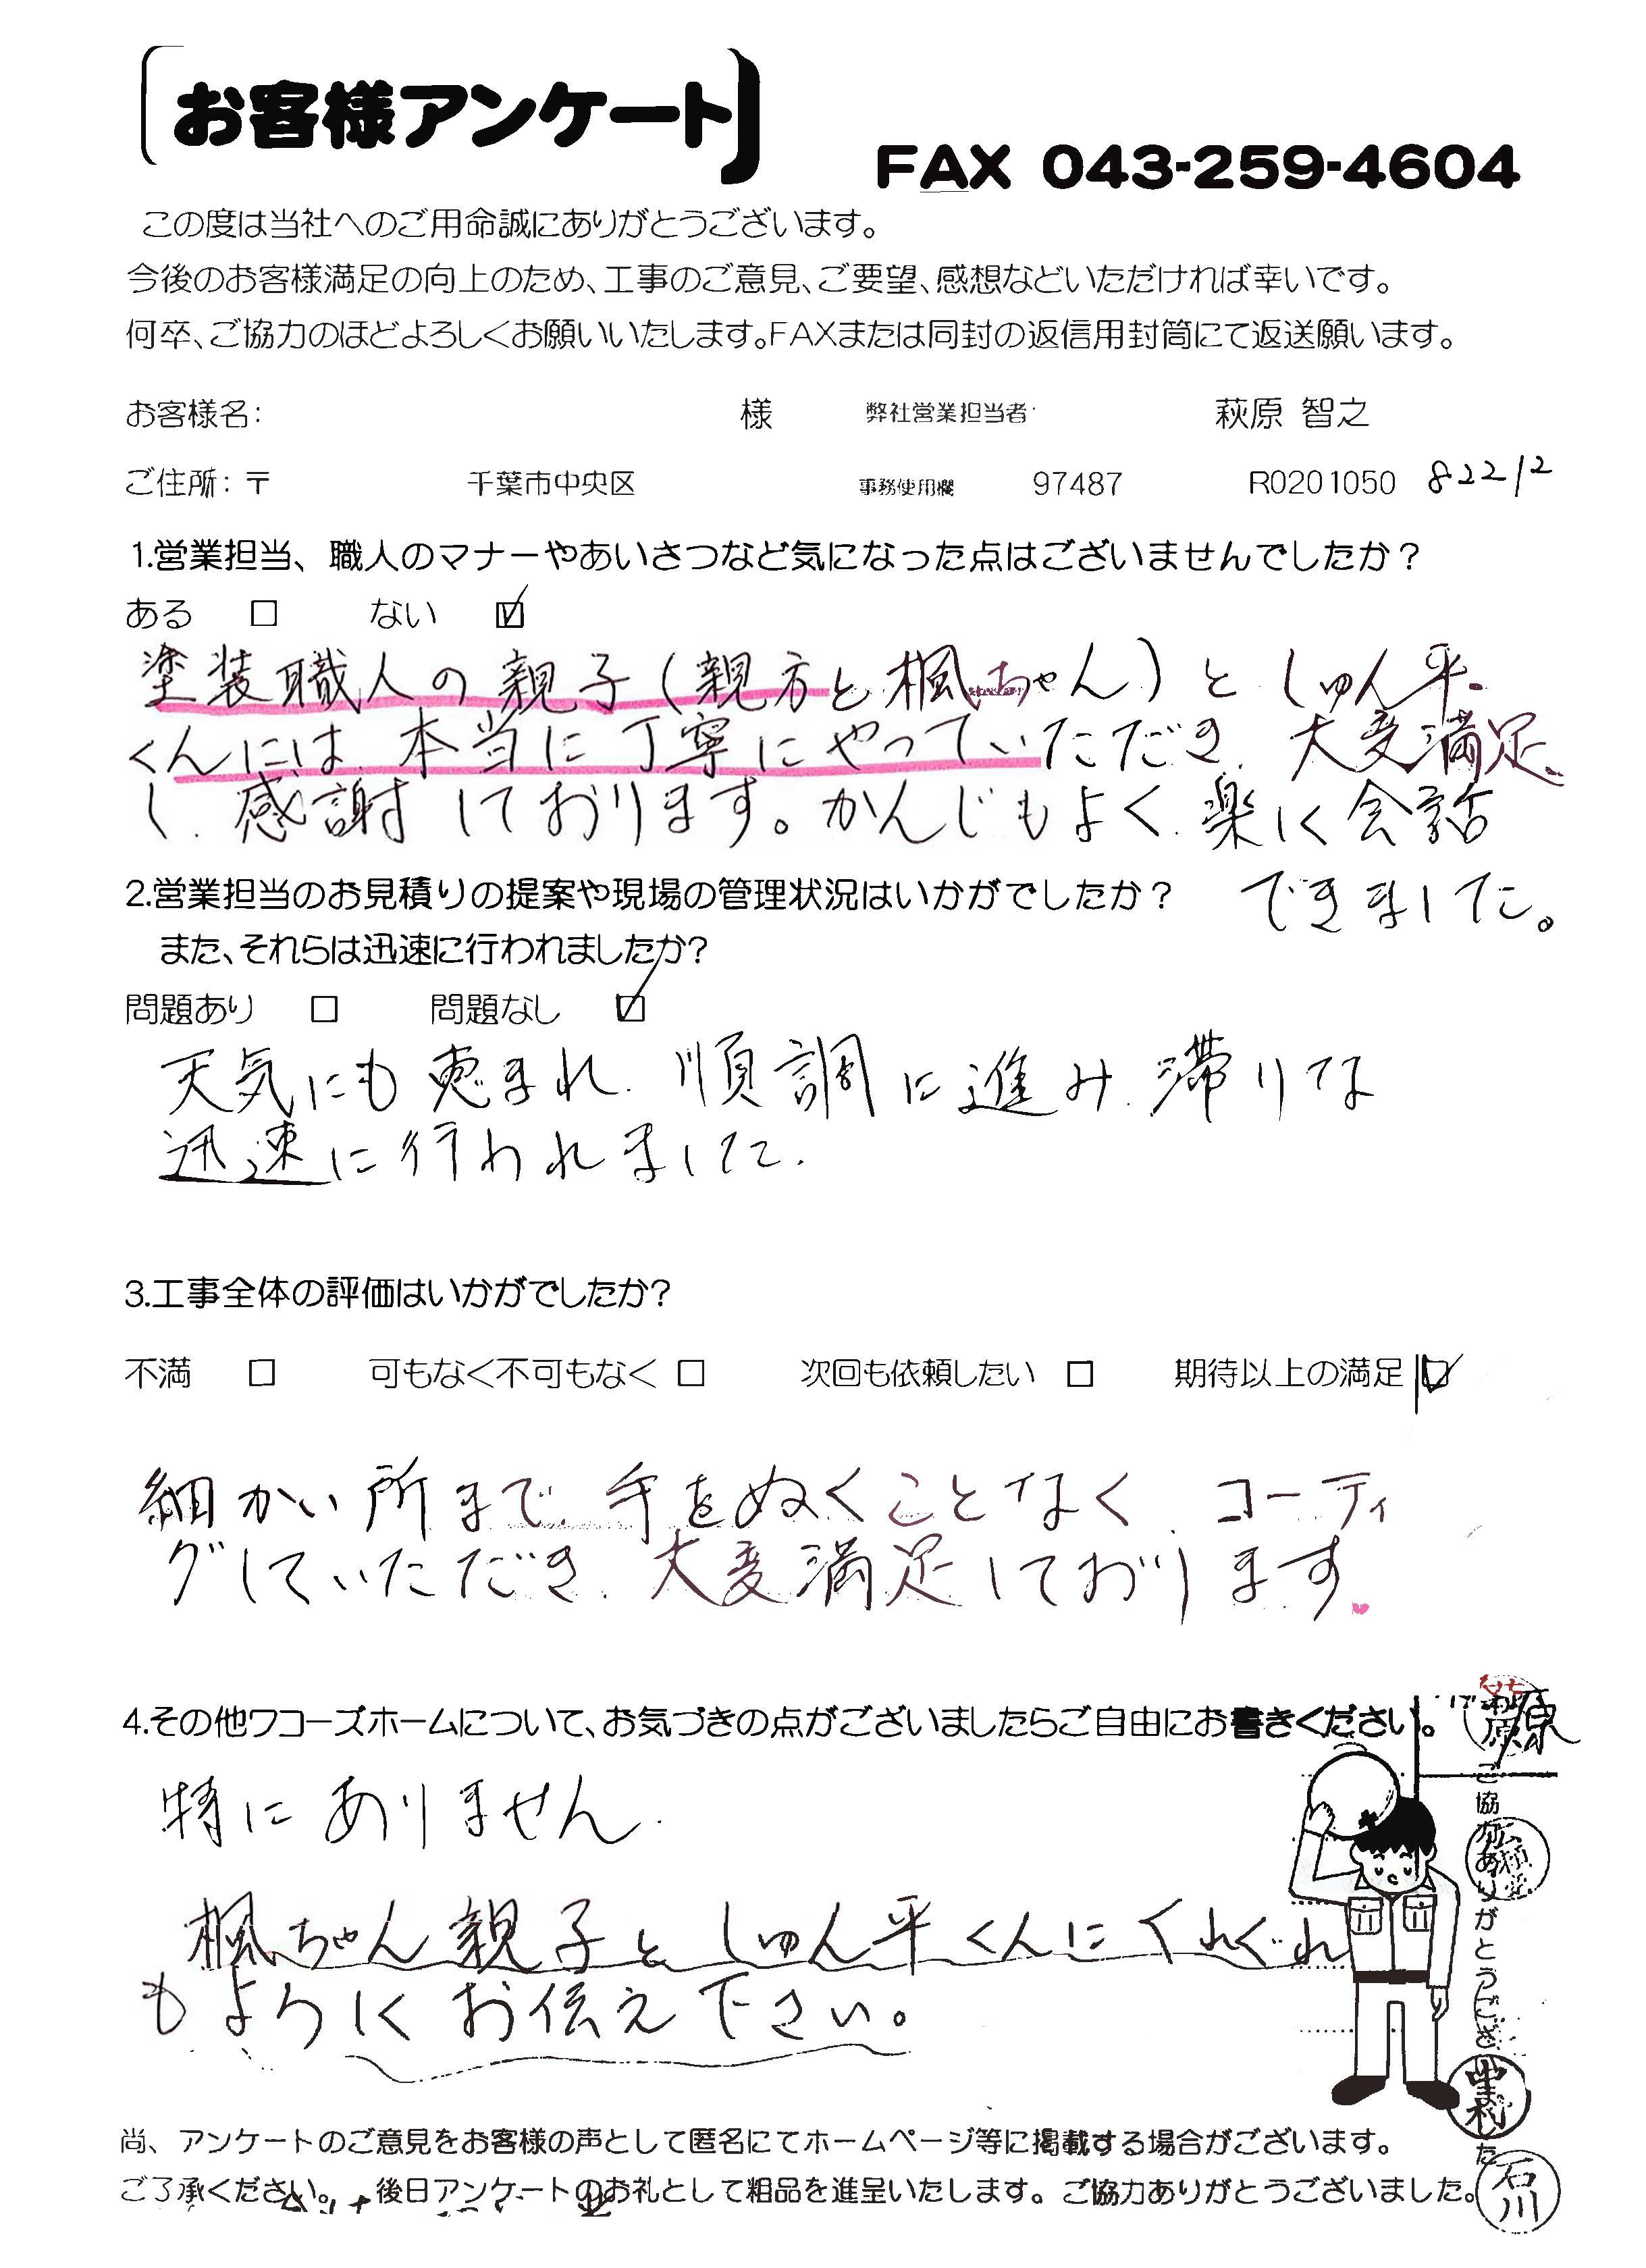 お客様アンケート
FAX 043-259-4604
この度は当社へのご用命誠にありがとうございます。
今後のお客様満足の向上のため、工事のご意見、ご要望、感想などいただければ幸いです。
何卒、ご協力のほどよろしくお願いいたします。FAXまたは同封の返信用封筒にて返送願います。
お客様名: 様 弊社営業担当者 萩原 智之
ご住所:〒 千葉市中央区 事務使用欄 97487 R0201050 82212
1.営業担当、職人のマナーやあいさつなど気になった点はございませんでしたか?
ある □ ない ☑
塗装職人の親子(親方と楓ちゃん)としゅん平
くんには、本当に丁寧にやっていただき、大変満足
し、感謝しております。かんじもよく、楽しく会話
できました。
2.営業担当のお見積りの提案や現場の管理状況はいかがでしたか?
また、それらは迅速に行われましたか?
問題あり □ 問題なし ☑
天気にも恵まれ、順調に進み、滞りな
迅速に行われました。
3.工事全体の評価はいかがでしたか?
不満 □ 可もなく不可もなく □ 次回も依頼したい □ 期待以上の満足 ☑
細かい所まで、手をぬくことなく、コーティ
グしていただき、大変満足しております。
4.その他ワコーズホームについて、お気づきの点がございましたらご自由にお書きください。
特にありません
楓ちゃん親子としゅん平くんにくれぐれ
もよろしくお伝え下さい。
ご協力ありがとうございました
石川
尚、アンケートのご意見をお客様の声として匿名にてホームページ等に掲載する場合がございます。
ご了承ください。 後日アンケートのお礼として粗品を進呈いたします。ご協力ありがとうございました。